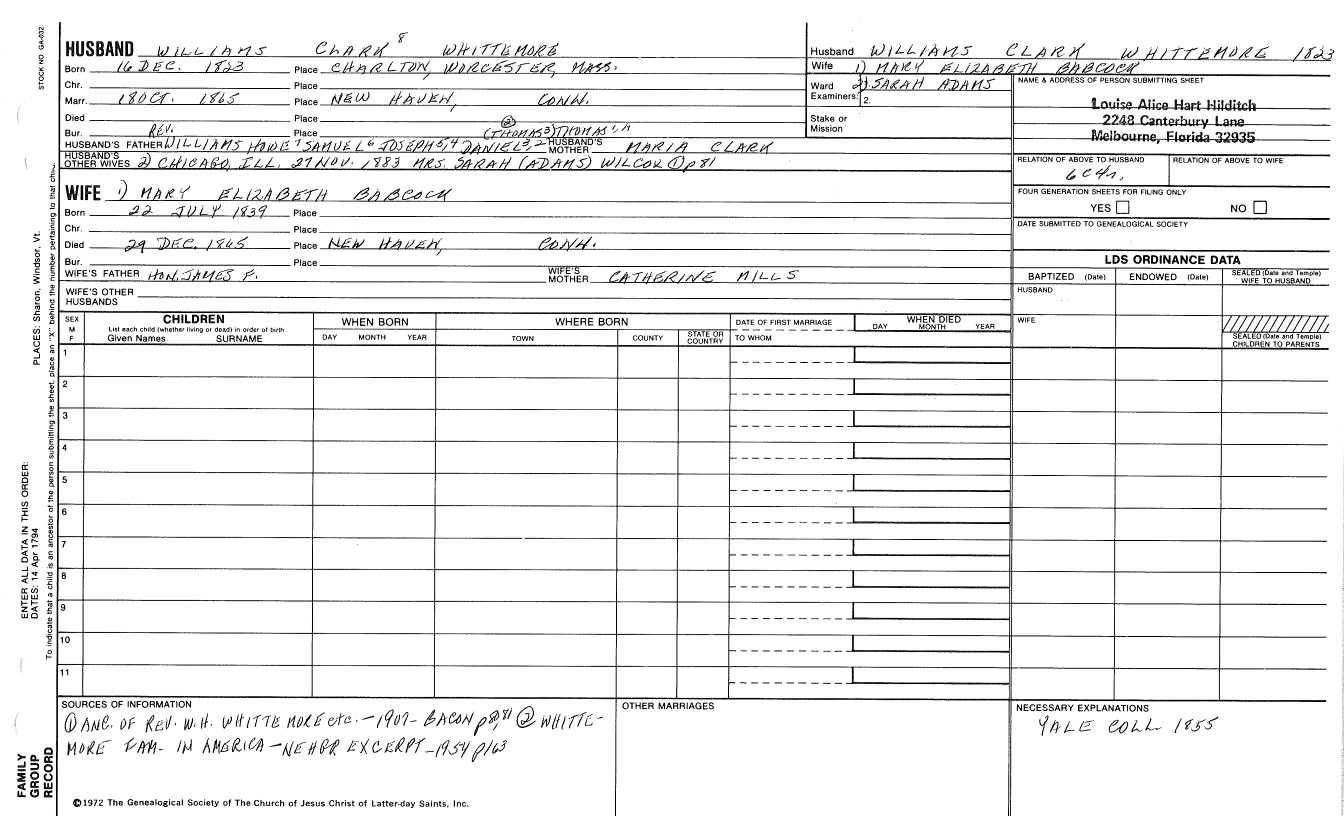 STOCK NO GA-032
HUSBAND WILLIAMS CLARK 8 WHITTEMORE
Born 16 DEC. 1823 Place CHARLTON, WORCESTER, MASS.
Chr. Place
Marr. 18 OCT. 1865 Place NEW HAVEN, CONN.
Died Place
Bur. Place
HUSBAND'S FATHER REV. WILLIAMS HOWE 7 SAMUEL 6 JOSEPH 5,4 DANIEL 3,2 (THOMAS 3) (2) THOMAS 1,A HUSBAND'S MOTHER MARIA CLARK
HUSBAND'S OTHER WIVES 2) CHICAGO, ILL. 27 NOV. 1883 MRS. SARAH (ADAMS) WILCOX (1) p81
WIFE 1) MARY ELIZABETH BABCOCK
Born 22 JULY 1839 Place
Chr. Place
Died 29 DEC. 1865 Place NEW HAVEN, CONN.
Bur. Place
WIFE'S FATHER HON. JAMES F. WIFE'S MOTHER CATHERINE MILLS
WIFE'S OTHER HUSBANDS
Husband WILLIAMS CLARK WHITTEMORE 1823
Wife 1) MARY ELIZABETH BABCOCK
Ward 2) SARAH ADAMS
Examiners: 2.
Stake or Mission
NAME & ADDRESS OF PERSON SUBMITTING SHEET
Louise Alice Hart Hilditch
2248 Canterbury Lane
Melbourne, Florida 32935
RELATION OF ABOVE TO HUSBAND RELATION OF ABOVE TO WIFE
6C4r.
FOUR GENERATION SHEETS FOR FILING ONLY
YES NO
DATE SUBMITTED TO GENEALOGICAL SOCIETY
LDS ORDINANCE DATA
BAPTIZED (Date) ENDOWED (Date) SEALED (Date and Temple) WIFE TO HUSBAND
HUSBAND
WIFE
SEALED (Date and Temple) CHILDREN TO PARENTS
SEX M F CHILDREN WHEN BORN WHERE BORN DATE OF FIRST MARRIAGE WHEN DIED
List each child (whether living or dead) in order of birth DAY MONTH YEAR
Given Names SURNAME DAY MONTH YEAR TOWN COUNTY STATE OR COUNTRY TO WHOM
1
2
3
4
5
6
7
8
9
10
11
SOURCES OF INFORMATION
(1) ANC. OF REV. W.H. WHITTEMORE etc. - 1907 - BACON p80,81 (2) WHITTE-
MORE FAM- IN AMERICA - NEHGR EXCERPT - 1954 p163
©1972 The Genealogical Society of The Church of Jesus Christ of Latter-day Saints, Inc.
OTHER MARRIAGES
NECESSARY EXPLANATIONS
YALE COLL. 1855
PLACES: Sharon, Windsor, Vt.
ENTER ALL DATA IN THIS ORDER:
DATES: 14 Apr 1794
To indicate that a child is an ancestor of the person submitting the sheet, place an "X" behind the number pertaining to that
FAMILY
GROUP
RECORD